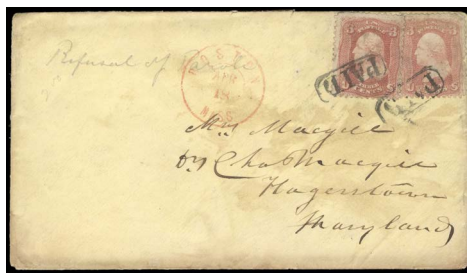 Refusal of
BOSTON
APR
18
MASS
3 3 3
PAID
PAID
Mrs Macgill
Dr Chas Macgill
Hagerstown
Maryland